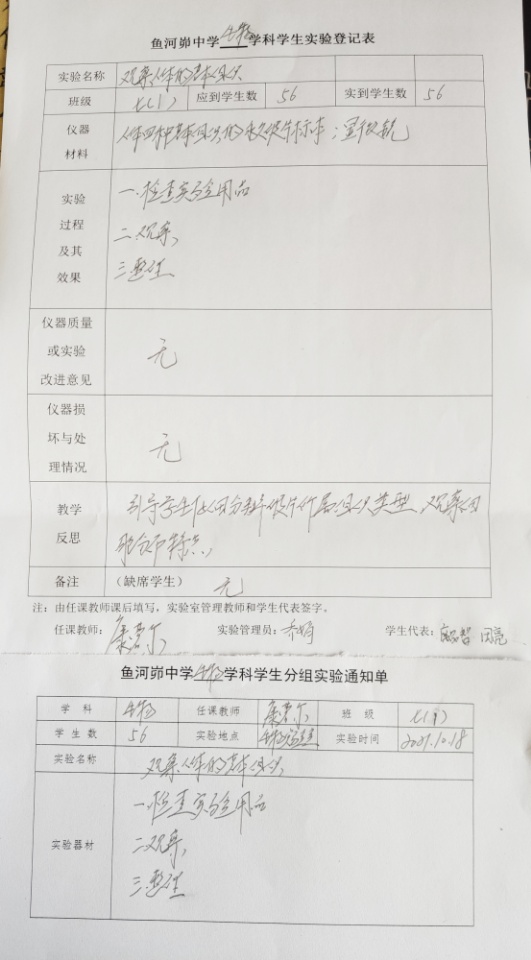 鱼河峁中学生物学科学生实验登记表
实验名称 观察人体的基本组织
班级 七(1) 应到学生数 56 实到学生数 56
仪器材料 人体四种基本组织的永久玻片标本;显微镜
实验过程及其效果
一.检查实验用品
二.观察
三.整理
仪器质量或实验改进意见 无
仪器损坏与处理情况 无
教学反思
引导学生 分辨玻片 组织类型,观察细
胞分布特点
备注 (缺席学生) 无
注:由任课教师课后填写,实验室管理教师和学生代表签字。
任课教师: 实验管理员: 学生代表:
鱼河峁中学生物学科学生分组实验通知单
学科 生物 任课教师 班级 七(1)
学生数 56 实验地点 生物实验室 实验时间 2021.10.18
实验名称 观察人体的基本组织
实验器材
一.检查实验用品
二.观察
三.整理